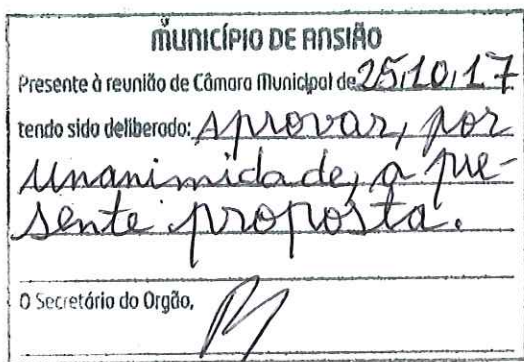 MUNICÍPIO DE ANSIÃO
Presente à reunião de Câmara Municipal de 25,10,17
tendo sido deliberado: Aprovar, por
unanimidade, a pre-
sente proposta.
O Secretário do Orgão,